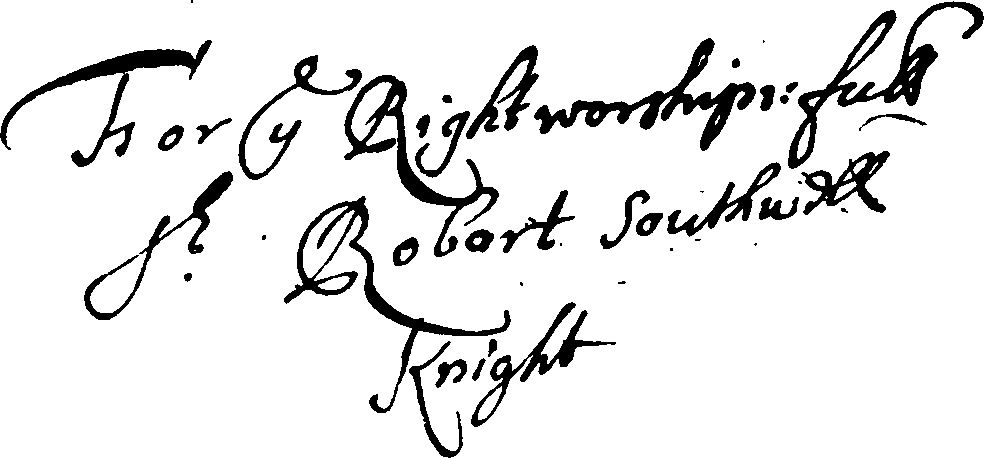 For yᵉ Right worship:full
Sʳ. Robart Southwell
Knight